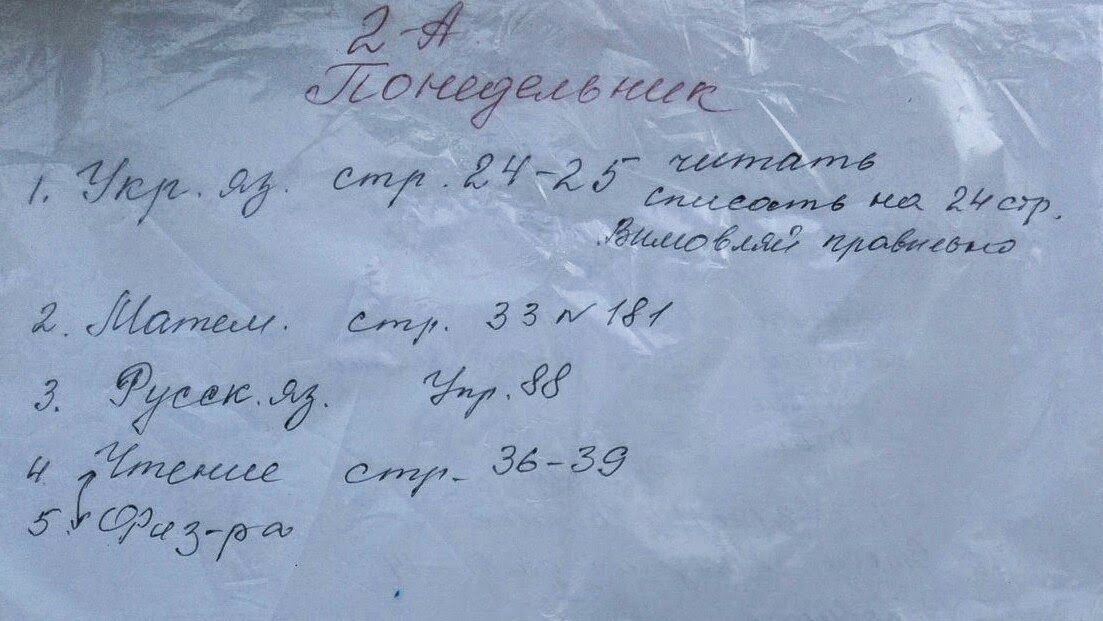 2-А
Понедельник
1. Укр. яз. стр. 24-25 читать
списать на 24 стр.
Вимовляй правильно
2. Матем. стр. 33 № 181
3. Русск. яз. Упр. 88
4 Чтение стр. 36-39
5. Физ-ра